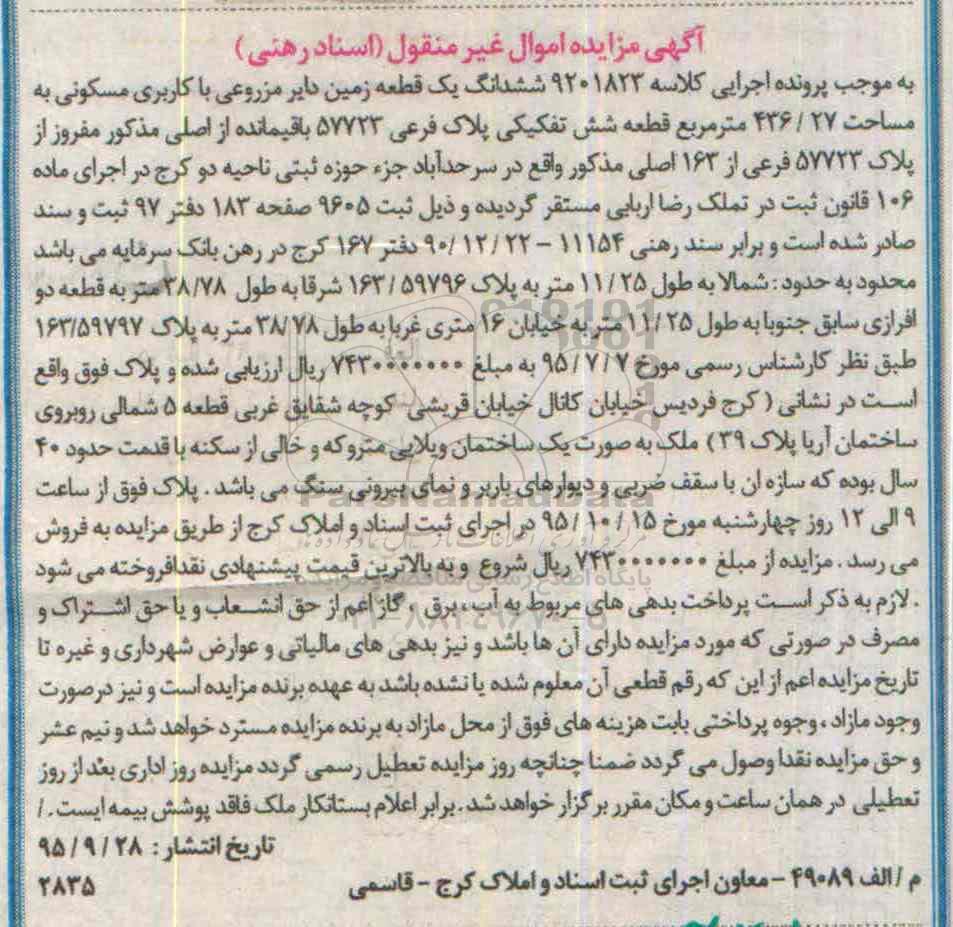 آگهی مزایده اموال غیر منقول (اسناد رهنی)
به موجب پرونده اجرایی کلاسه ۹۲۰۱۸۲۳ ششدانگ یک قطعه زمین دایر مزروعی با کاربری مسکونی به
مساحت ۴۳۶/۲۷ مترمربع قطعه شش تفکیکی پلاک فرعی ۵۷۷۲۳ باقیمانده از اصلی مذکور مفروز از
پلاک ۵۷۷۲۳ فرعی از ۱۶۳ اصلی مذکور واقع در سرحدآباد جزء حوزه ثبتی ناحیه دو کرج در اجرای ماده
۱۰۶ قانون ثبت در تملک رضا اربابی مستقر گردیده و ذیل ثبت ۹۶۰۵ صفحه ۱۸۳ دفتر ۹۷ ثبت و سند
صادر شده است و برابر سند رهنی ۱۱۱۵۴ – ۹۰/۱۲/۲۲ دفتر ۱۶۷ کرج در رهن بانک سرمایه می باشد
محدود به حدود: شمالا به طول ۱۱/۲۵ متر به پلاک ۱۶۳/۵۹۷۹۶ شرقا به طول ۳۸/۷۸ متر به قطعه دو
افرازی سابق جنوبا به طول ۱۱/۲۵ متر به خیابان ۱۶ متری غربا به طول ۳۸/۷۸ متر به پلاک ۱۶۳/۵۹۷۹۷
طبق نظر کارشناس رسمی مورخ ۹۵/۷/۷ به مبلغ ۷۴۳۰۰۰۰۰۰۰ ریال ارزیابی شده و پلاک فوق واقع
است در نشانی (کرج فردیس خیابان کانال خیابان قریشی کوچه شقایق غربی قطعه ۵ شمالی روبروی
ساختمان آریا پلاک ۳۹) ملک به صورت یک ساختمان ویلایی متروکه و خالی از سکنه با قدمت حدود ۴۰
سال بوده که سازه ان با سقف ضربی و دیوارهای باربر و نمای بیرونی سنگ می باشد. پلاک فوق از ساعت
۹ الی ۱۲ روز چهارشنبه مورخ ۹۵/۱۰/۱۵ در اجرای ثبت اسناد و املاک کرج از طریق مزایده به فروش
می رسد. مزایده از مبلغ ۷۴۳۰۰۰۰۰۰۰ ریال شروع و به بالاترین قیمت پیشنهادی نقدا فروخته می شود
. لازم به ذکر است پرداخت بدهی های مربوط به آب، برق، گاز اعم از حق انشعاب و یا حق اشتراک و
مصرف در صورتی که مورد مزایده دارای آن ها باشد و نیز بدهی های مالیاتی و عوارض شهرداری و غیره تا
تاریخ مزایده اعم از این که رقم قطعی آن معلوم شده یا نشده باشد به عهده برنده مزایده است و نیز در صورت
وجود مازاد، وجوه پرداختی بابت هزینه های فوق از محل مازاد به برنده مزایده مسترد خواهد شد و نیم عشر
و حق مزایده نقدا وصول می گردد ضمنا چنانچه روز مزایده تعطیل رسمی گردد مزایده روز اداری بعد از روز
تعطیلی در همان ساعت و مکان مقرر برگزار خواهد شد. برابر اعلام بستانکار ملک فاقد پوشش بیمه ایست./
تاریخ انتشار: ۹۵/۹/۲۸
م/الف ۴۹۰۸۹ – معاون اجرای ثبت اسناد و املاک کرج – قاسمی
۲۸۳۵
ParsNamadData